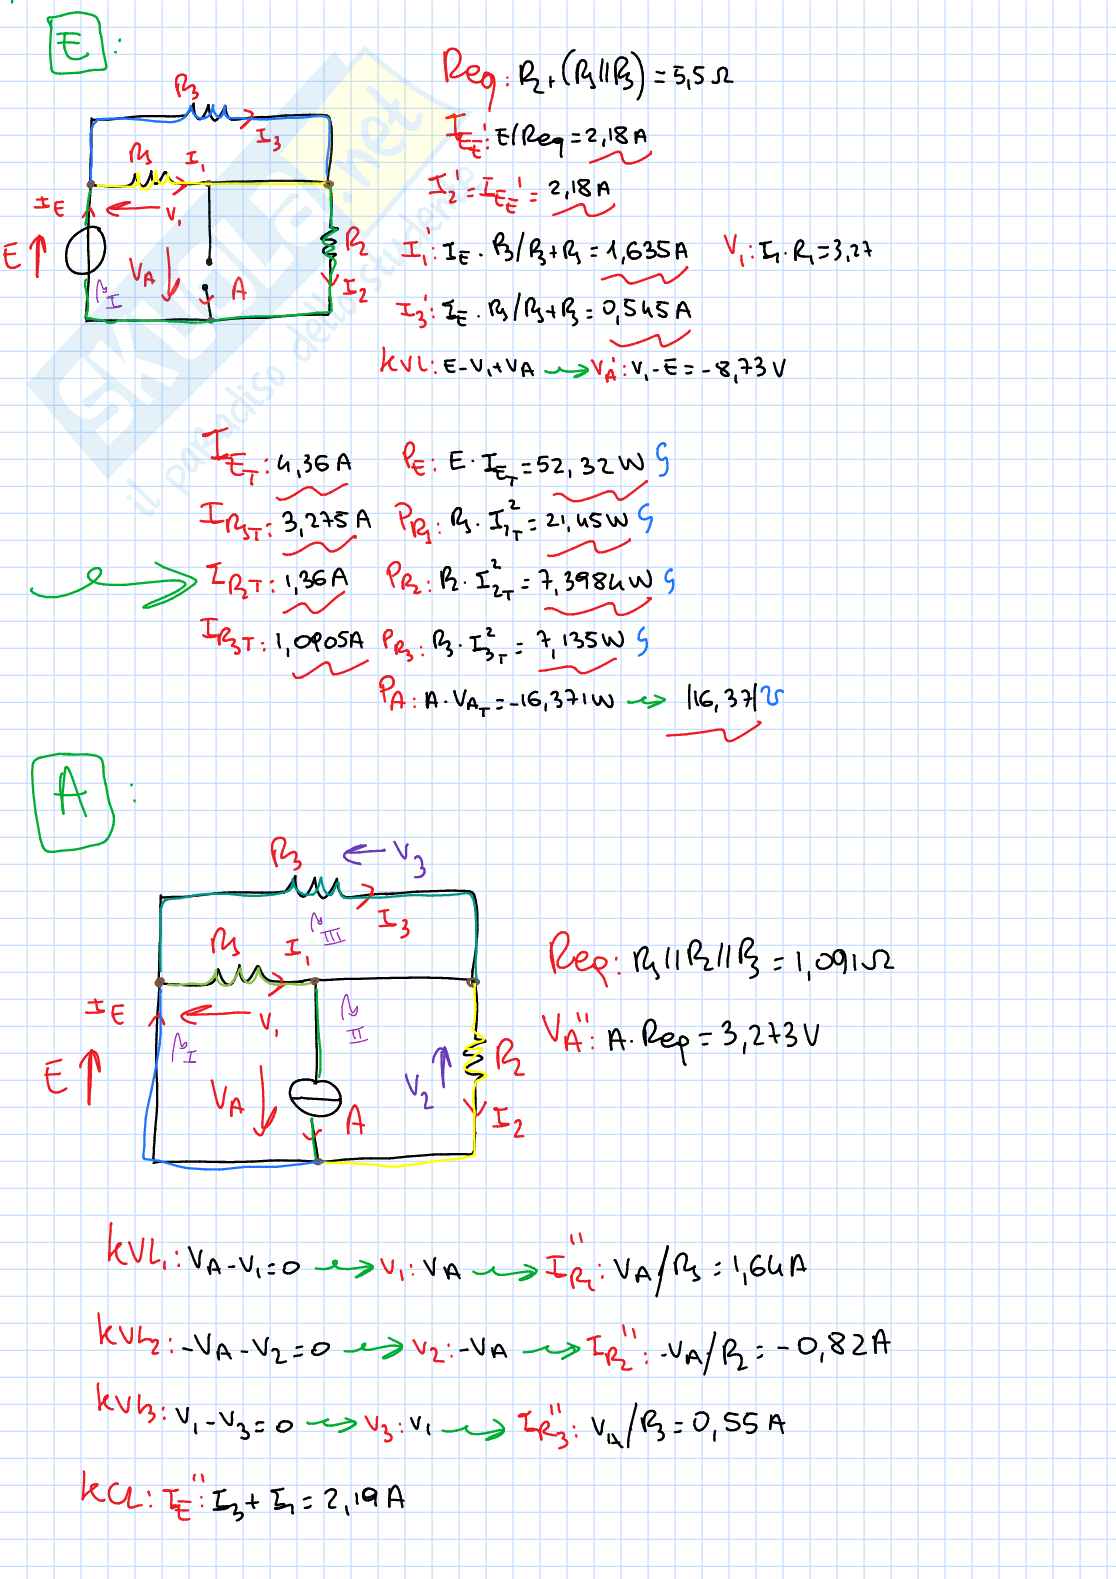 E :
R3
I3
R1 I1
IE V1
E VA A R2
I I2
Req: R2+(R1//R3) = 5,5 Ω
IE'E: E/Req = 2,18 A
I2' = IE'E = 2,18 A
I1': IE · R3/R3+R1 = 1,635 A V1: I1·R1 = 3,27
I3': IE · R1/R1+R3 = 0,545 A
KVL: E-V1+VA → VA': V1-E = -8,73 V
IET: 4,36 A PE: E·IET = 52,32 W
IR1T: 3,275 A PR1: R1·I1T² = 21,45 W
IR2T: 1,36 A PR2: R2·I2T² = 7,3984 W
IR3T: 1,0905 A PR3: R3·I3T² = 7,135 W
PA: A·VAT = -16,371 W → |16,37|
A :
R3 ← V3
I3
III
R1 I1
IE V1 II
I
E VA A V2 R2
I2
Req: R1//R2//R3 = 1,091 Ω
VA'': A·Req = 3,273 V
KVL1: VA-V1=0 → V1: VA → IR1'': VA/R1 = 1,64 A
KVL2: -VA-V2=0 → V2: -VA → IR2'': -VA/R2 = -0,82 A
KVL3: V1-V3=0 → V3: V1 → IR3'': VA/R3 = 0,55 A
KCL: IE'': I3+I1 = 2,19 A
SKUOLA.net
il paradiso dello studente